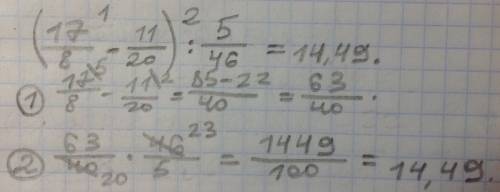 (17/8 ¹ - 11/20) ² : 5/46 = 14,49.
① 17\5/8 - 11\2/20 = 85-22/40 = 63/40.
② 63/40 20 · 46 23/5 = 1449/100 = 14,49.